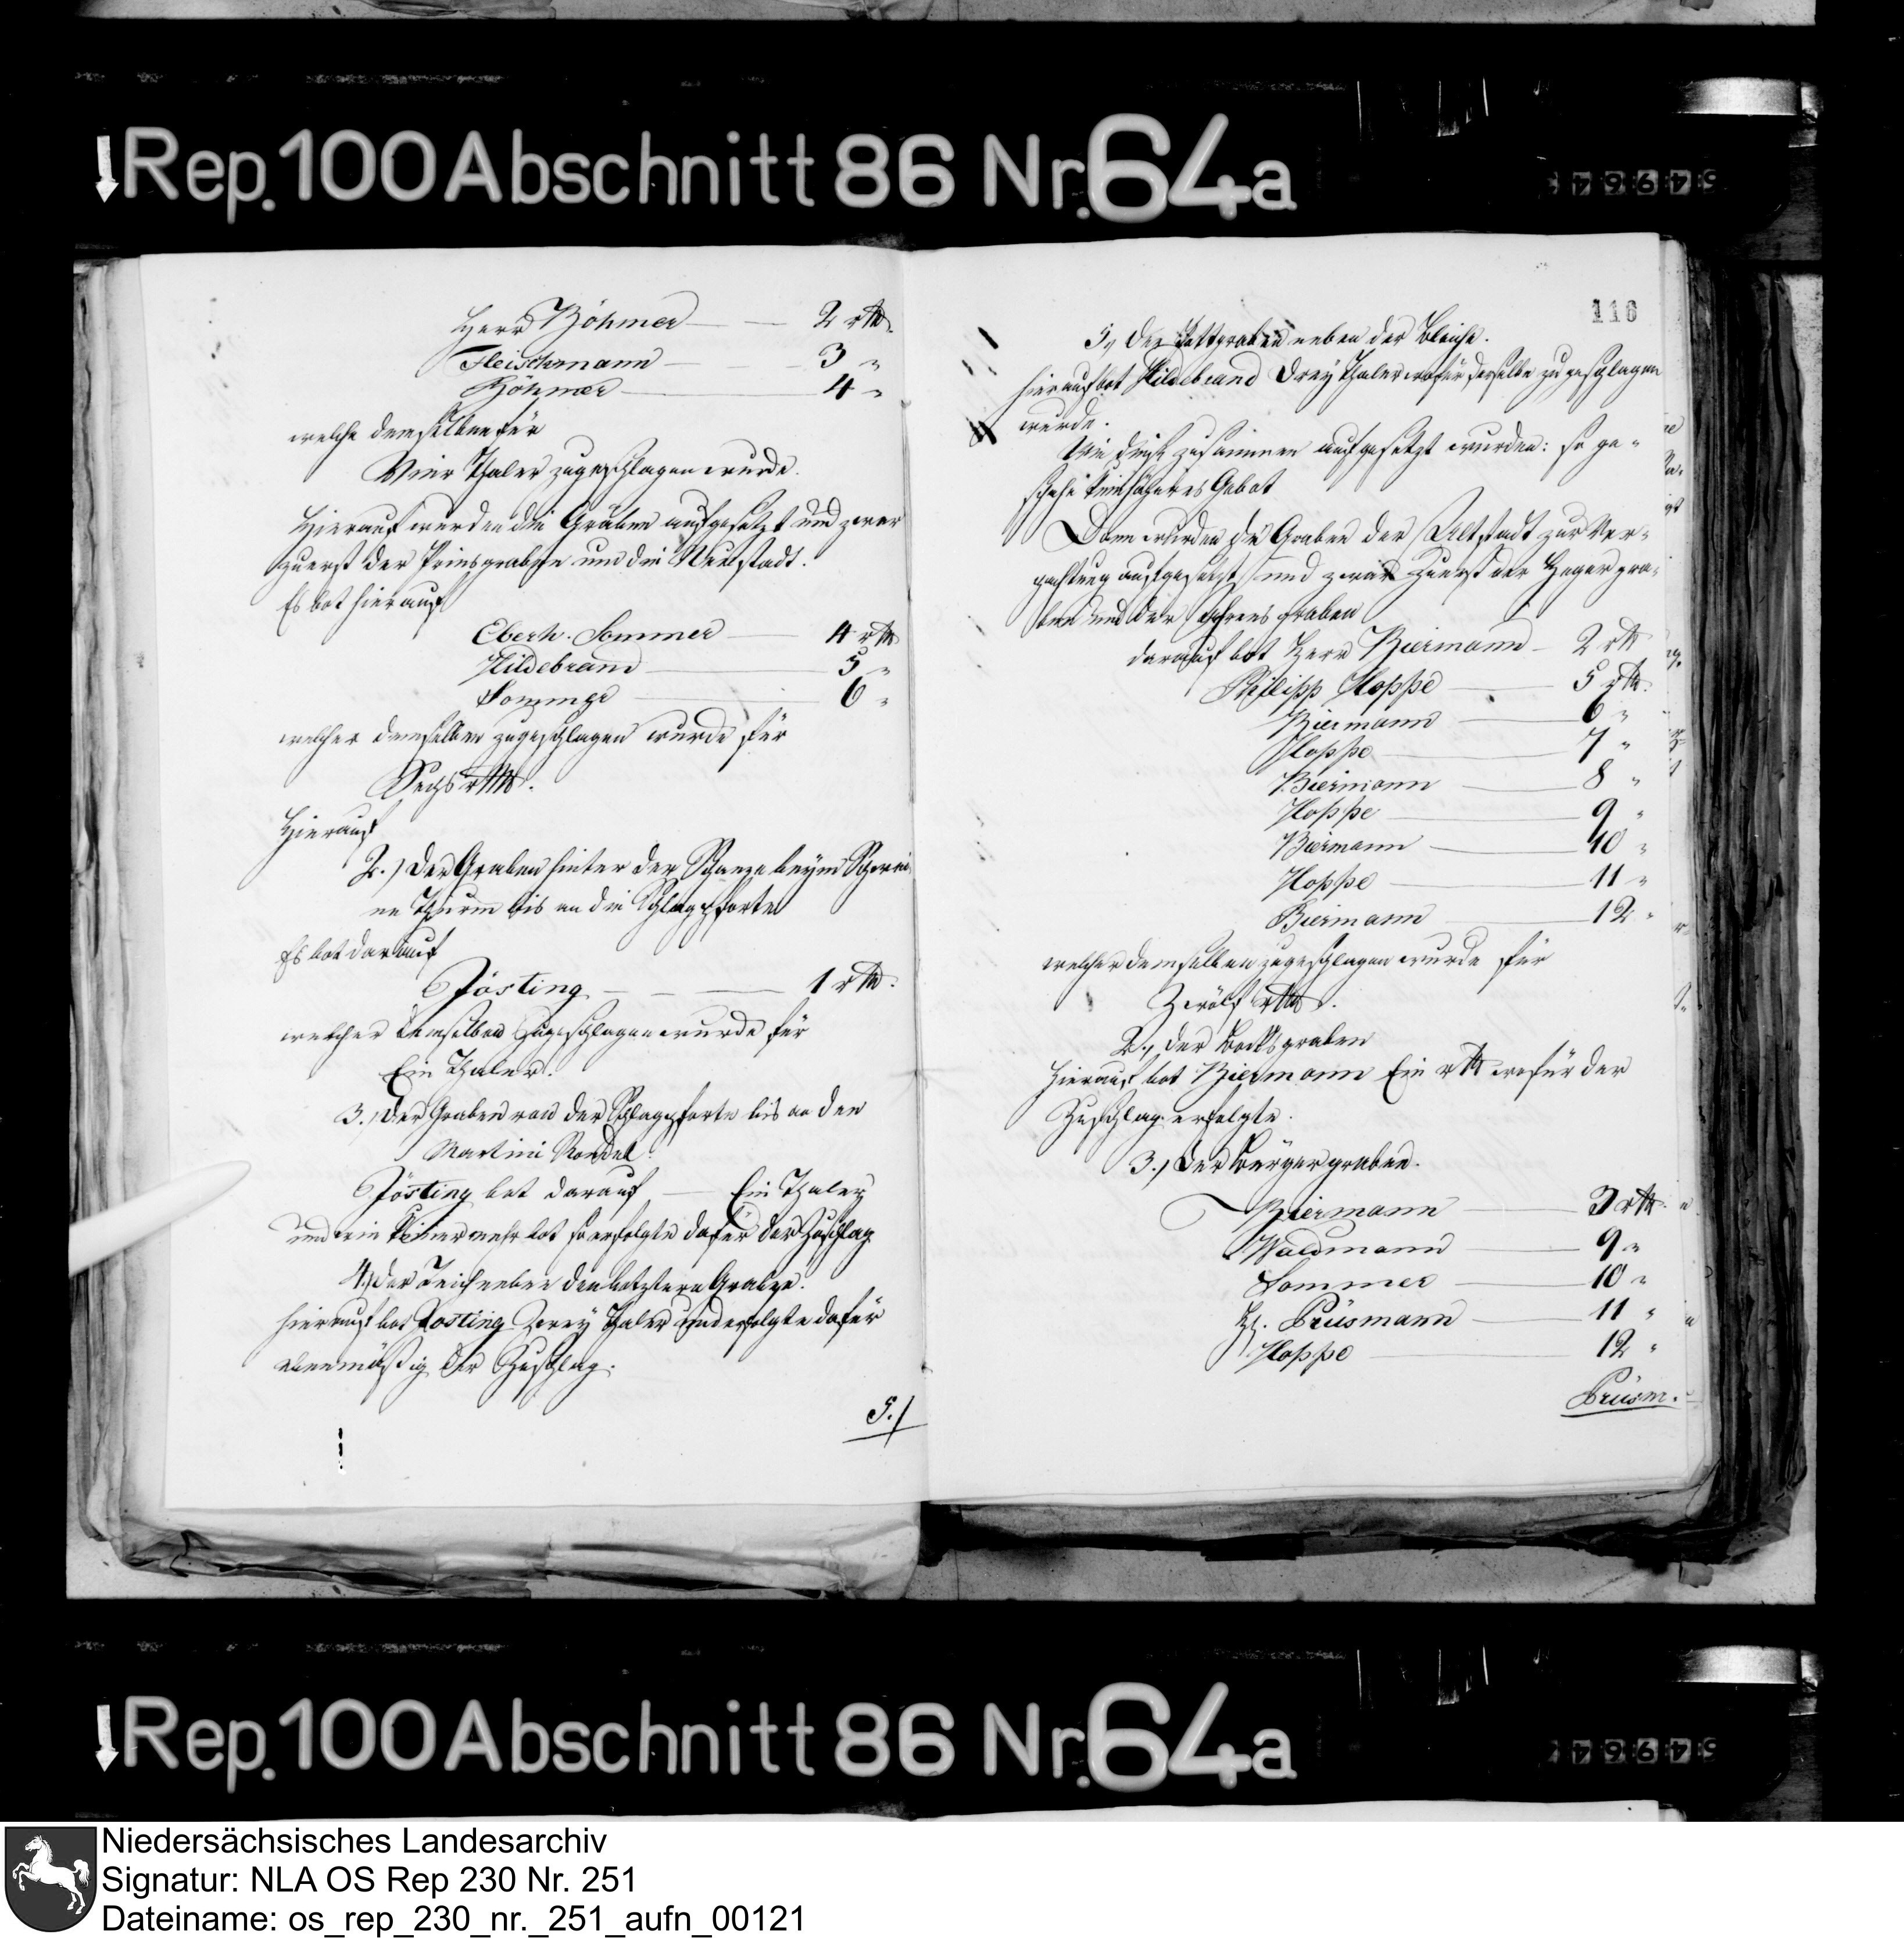 ↓Rep.100 Abschnitt 86 Nr.64a
Herr Böhmer — — 2 rthl.
Fleischmann — 3 "
Böhmer — 4 "
welche demselben für
Vier Thaler zugeschlagen wurde.
Hierauf wurden die Gräben aufgesetzt und zwar
zuerst der um die Neustadt.
Es bot hierauf
Eberh. Sommer — 4 rthl
Hildebrand — 5 "
Sommer — 6 "
welcher demselben zugeschlagen wurde für
Sechs rthl.
Hierauf
2.) Der Graben hinter der Schanze beym
Thurm bis an die Schlagpforte
Es bot darauf
Jösting — — — 1 rthl.
welcher demselben zugeschlagen wurde für
Ein Thaler.
3.) Der Graben von der Schlagpforte bis an den
Martini Rondel
Jösting bot darauf — Ein Thaler
und wie keiner mehr bot so erfolgte dafür der Zuschlag
4.) Der Teich neben den letztern Graben.
hierauf bot Jösting Zwey Thaler und erfolgte dafür
ebenmäßig der Zuschlag.
5.)
116
5, Der neben der Bleiche.
hierauf bot Hildebrand Drey Thaler wofür derselbe zugeschlagen
wurde.
Wie diese zusammen aufgesetzt wurden: so ge-
schahe kein höheres Gebot
Dann wurden die Graben der Altstadt zur Ver-
pachtung aufgesetzt und zwar Zuerst der Heger gra-
ben und der graben
darauf bot Herr Biermann — 2 rthl
Philipp Hoppe — 5 rthl.
Biermann — 6 "
Hoppe — 7 "
Biermann — 8 "
Hoppe — 9 "
Biermann — 10 "
Hoppe — 11 "
Biermann — 12 "
welcher demselben zugeschlagen wurde für
Zwölf rthl.
2., Der Bocksgraben
Hierauf bot Biermann Ein rthl wofür der
Zuschlag erfolgte.
3.) Der Bürgergraben.
Biermann — 3 rthl.
Waldmann — 9 "
Sommer — 10 "
Prüsmann — 11 "
Hoppe — 12 "
Prüsm.
↓Rep.100 Abschnitt 86 Nr.64a
Niedersächsisches Landesarchiv
Signatur: NLA OS Rep 230 Nr. 251
Dateiname: os_rep_230_nr._251_aufn_00121